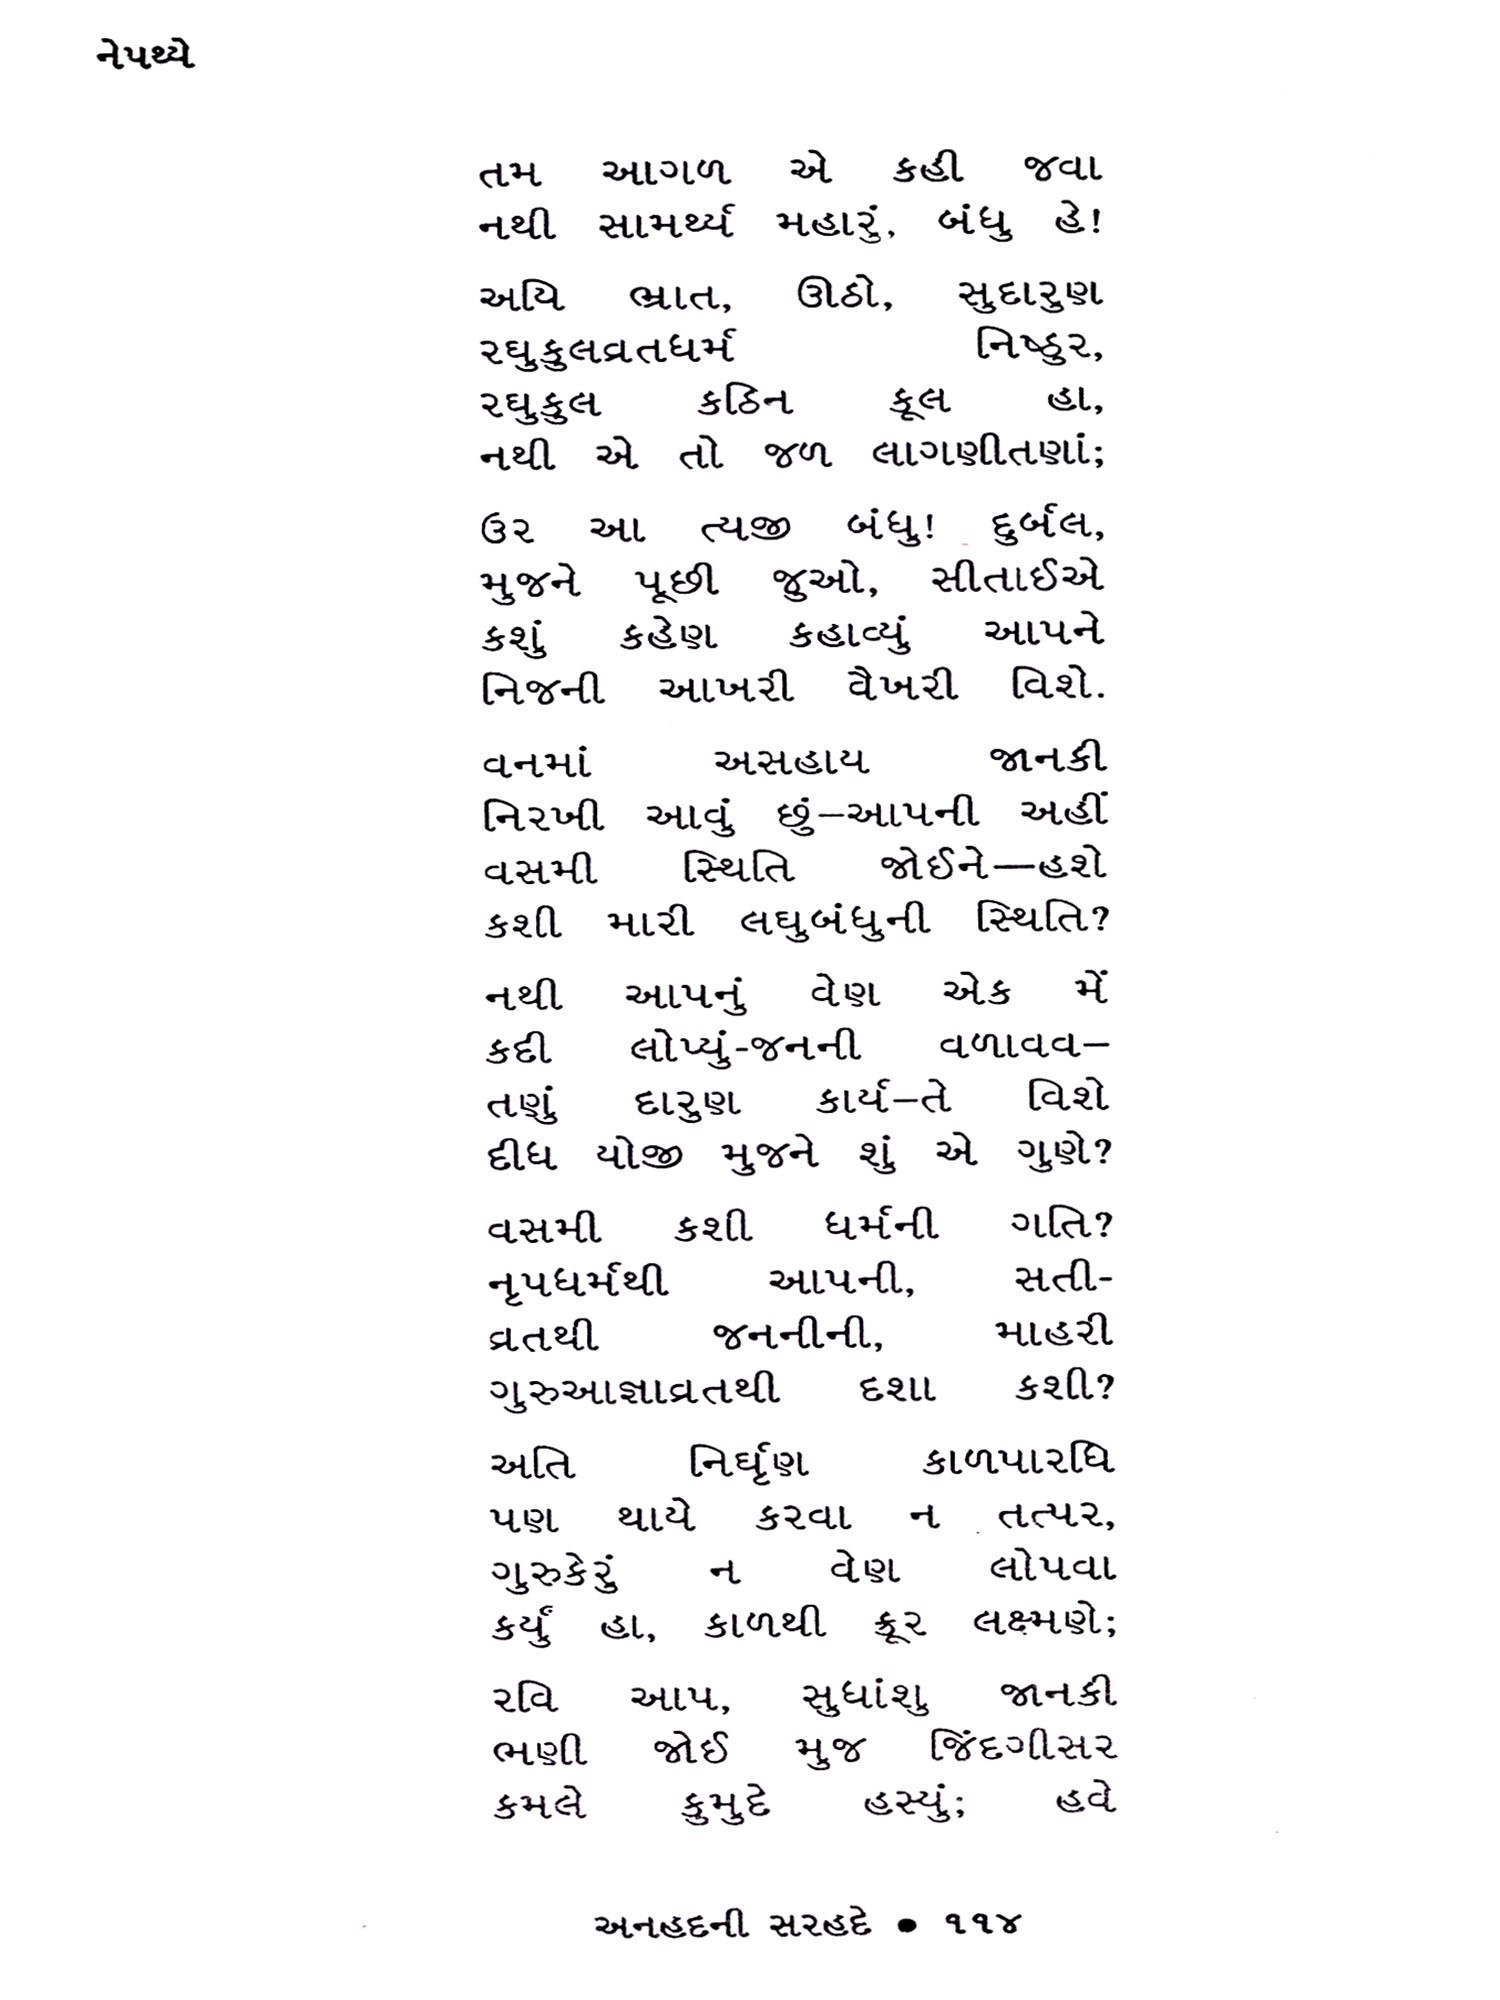 નેપથ્યે
તમ આગળ એ કહી જવા
નથી સામર્થ્ય મહારું, બંધુ હે!
અયિ ભ્રાત, ઊઠો, સુદારુણ
રઘુકુલવ્રતધર્મ નિષ્ઠુર,
રઘુકુલ કઠિન કૂલ હા,
નથી એ તો જળ લાગણીતણાં;
ઉર આ ત્યજી બંધુ! દુર્બલ,
મુજને પૂછી જુઓ, સીતાઈએ
કશું કહેણ કહાવ્યું આપને
નિજની આખરી વૈખરી વિશે.
વનમાં અસહાય જાનકી
નિરખી આવું છું–આપની અહીં
વસમી સ્થિતિ જોઈને—હશે
કશી મારી લઘુબંધુની સ્થિતિ?
નથી આપનું વેણ એક મેં
કદી લોપ્યું-જનની વળાવવ–
તણું દારુણ કાર્ય–તે વિશે
દીધ યોજી મુજને શું એ ગુણે?
વસમી કશી ધર્મની ગતિ?
નૃપધર્મથી આપની, સતી-
વ્રતથી જનનીની, માહરી
ગુરુઆજ્ઞાવ્રતથી દશા કશી?
અતિ નિર્ઘૃણ કાળપારધિ
પણ થાયે કરવા ન તત્પર,
ગુરુકેરું ન વેણ લોપવા
કર્યું હા, કાળથી ક્રૂર લક્ષ્મણે;
રવિ આપ, સુધાંશુ જાનકી
ભણી જોઈ મુજ જિંદગીસર
કમલે કુમુદે હસ્યું; હવે
અનહદની સરહદે • ૧૧૪